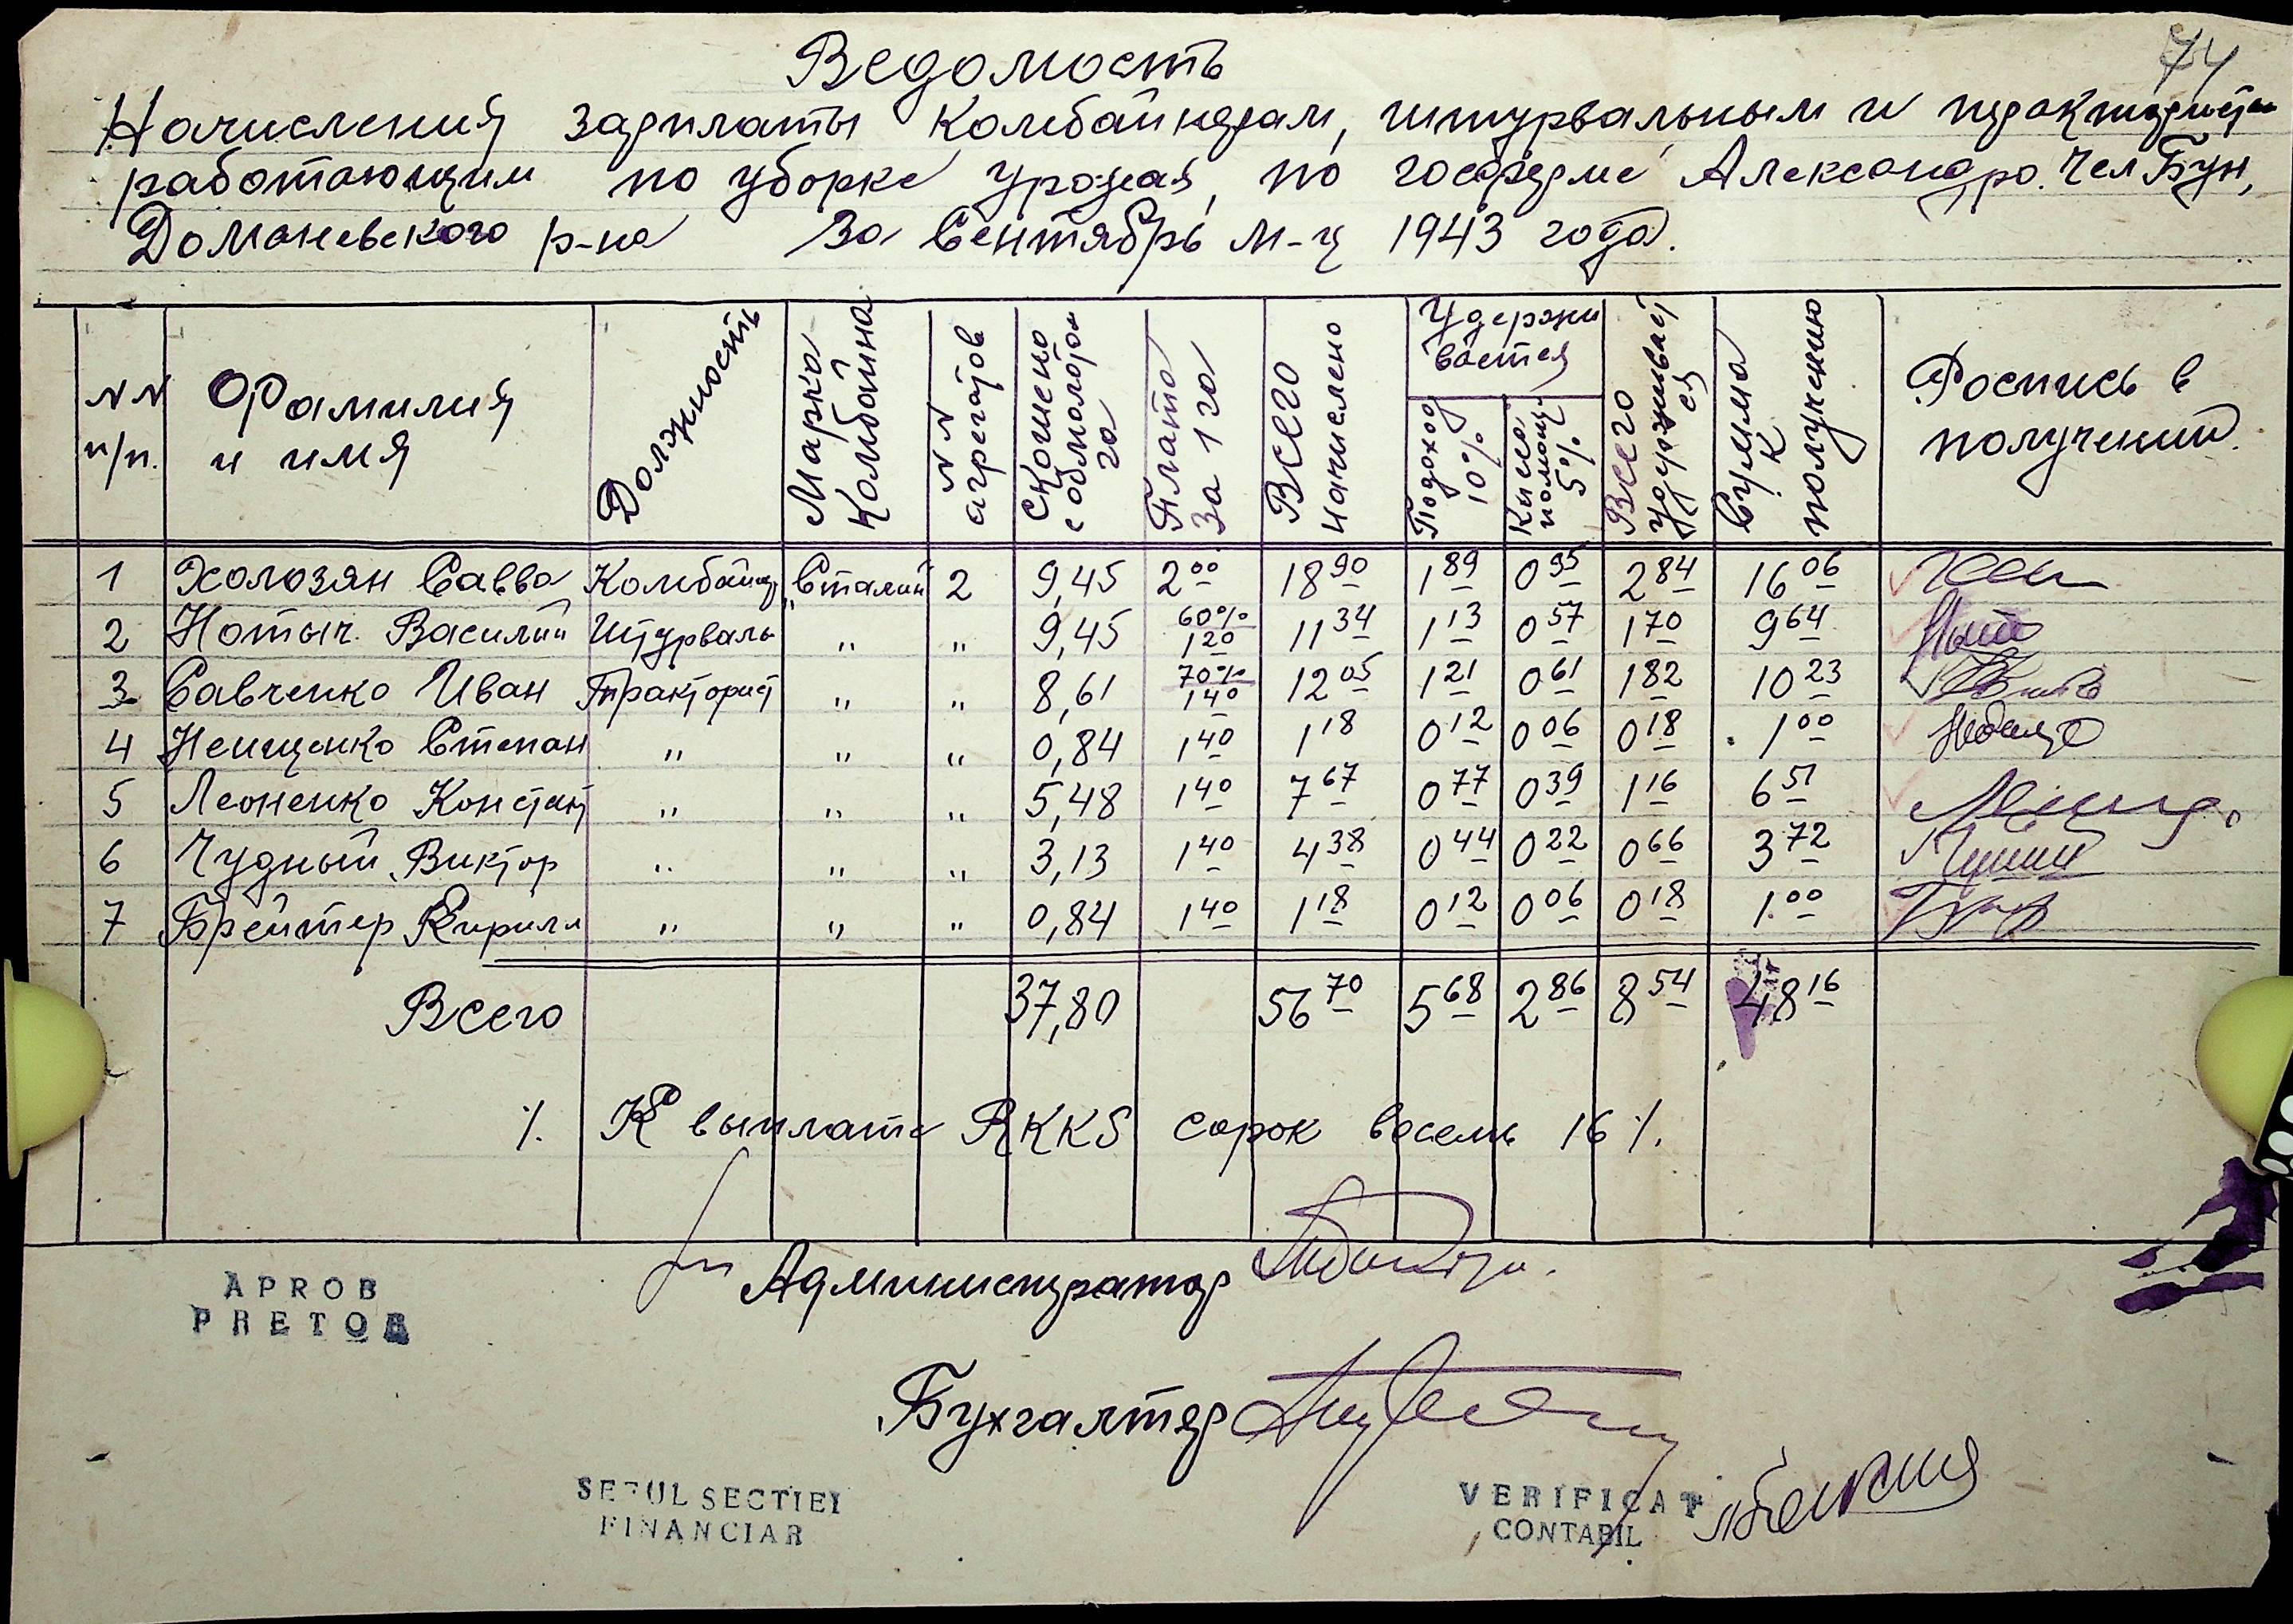 74
Ведомость
Начисления зарплаты комбайнерам, штурвальным и трактористам
работающим по уборке урожая, по госферме Александро. Чел Бун,
Доманевского р-на За Сентябрь м-ц 1943 года.
NN п/п. Фамилия и имя Должность Марка Комбайна NN агрегатов Скошено с обмолотом га Плата за 1 га Всего начислено Удержи вается Подоход 10% Касса помощи 5% Всего удерживается Сумма к получению Роспись в получении.
1 Холозян Савва Комбайнер "Сталин" 2 9,45 2 00 18 90 1 89 0 95 2 84 16 06
2 Нотыч. Василий Штурваль " " 9,45 60% 1 20 11 34 1 13 0 57 1 70 9 64
3 Савченко Иван Тракторист " " 8,61 70% 1 40 12 05 1 21 0 61 1 82 10 23
4 Нещенко Степан " " " 0,84 1 40 1 18 0 12 0 06 0 18 1 00
5 Леоненко Констант " " " 5,48 1 40 7 67 0 77 0 39 1 16 6 51
6 Чудный Виктор " " " 3,13 1 40 4 38 0 44 0 22 0 66 3 72
7 Брейтер Кирилл " " " 0,84 1 40 1 18 0 12 0 06 0 18 1 00
Всего 37,80 56 70 5 68 2 86 8 54 48 16
%. К выплате RKKS сорок восемь 16 %.
Администратор
APROB
PRETOR
Бухгалтер
SEFUL SECTIEI
FINANCIAR
VERIFICAT
CONTABIL